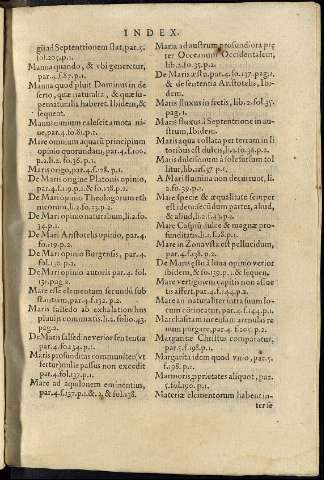 INDEX.
giūad Septentrionem flat, par.5.
fol.205.p.1.
Manna quando, & vbi generetur,
par.4.f.87.p.1.
Manna quod pluit Dominus in de
serto, quæ naturalia, & quæ su-
pernaturalia haberet. Ibidem, &
sequent.
Manus omnium calefcit a mota ni-
ue, par.4.fo.81.p.1.
Mare omnium aquarū principium
opinio quorundam, par.4.f.100.
p.2.li.2.fo.36.p.1.
Maris origo, par.4.f.128.p.1.
De Maris origine Platonis opinio,
par.4.f.119.p.1.& fo.128.p.2.
De Mari opinio Theologorum eth
nicorum.
De Mari opinio naturalium, li.2.fo.
34.p.1.
De Mari Aristotelis opinio, par.4.
fo.119.p.2.
De Mari opinio Burgensis, par.4.
fol.130.p.2.
De Mari opinio autoris par.4. fol.
131.pag.2.
Mare esse elementum secundū sub
stantiam, par.4.f.132.p.2.
Maris salsedo ab exhalationibus
pluuijs commistis. li.2. folio.43.
pag.2.
De Maris salsed. ne verior sententia
par.4.fo.134.p.1.
Maris profunditas communiter (vt
fertur) mille passus non excedit
par.4.fol.137.p.1.
Mare ad aquilonem eminentius,
par.4.f.137.p.1.& 2. & fol.138.
Maria ad austrum profundiora præ
ter Occeanum Occidentalem,
lib.2.fo.35.p.2.
De Maris æstu.par.4.fo.137.pag.1.
& de sententia Aristotelis, Ibi-
dem.
Maris fluxus in fretis, lib.2.fol.35.
pag.1.
Maris fluxus à Septentrione in au-
strum, Ibidem.
Maris aqua collata per terram in li
toribus est dulcis, li.2.fo.36.p.2.
Maris dulcissimum à sole sursum tol
litur, lib.2.f.37.p.1.
A Mari flumina non decurrunt, li.
2.fo.39.p.1.
Mare specie & æqualitate semper
est idem secūdum partes, aliud,
& aliud, li.2.f.43.p.1.
Mare Caspiū dulce & magnæ pro-
funditatis.li.2.f.38.p.1.
Mare in Zona vsta est pellucidum,
par.4.fo.138.p.2.
De Maris æstu à luna opinio verior
ibidem, & fo.139.p.1.& sequen.
Mare vertiginem capitis non assue
tis affert, par.4.f.144.p.1.
Mare an naturaliter intra suum lo-
cum coërceatur, par.4.f.144.p.1.
Mare statim incensam arenulas re
num purgare, par.4.fo.205.p.2.
Margaritæ Christus comparatur,
par.5.f.198.p.1.
Margarita idem quod vnio, par.5.
f.198.p.1.
Marmoris pprietates aliquot, par.
5.fol.190.p.1.
Materiæ elementorum habent in-
ter se